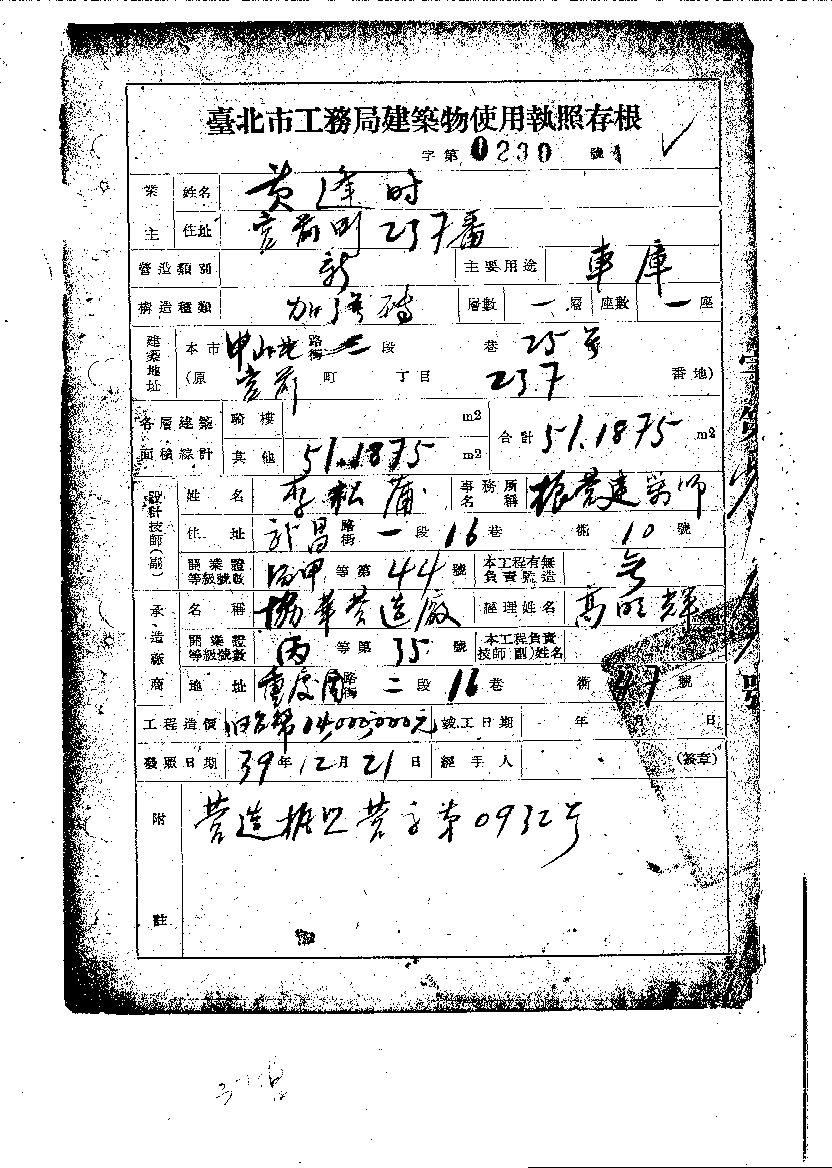 臺北市工務局建築物使用執照存根
字第0230號
業主 姓名 黃逢时
住址 宮前町237番
營造類別 新 主要用途 車庫
構造種類 加强磚 層數 一層 座數 一座
建築地址 本市 中山北路街二段 巷 25号
(原 宮前町 丁目 237 番地)
各層建築面積總計 騎樓 m2 合計 51.1875 m2
其他 51.1875 m2
設計技師(副) 姓名 李松蒲 事務所名稱 振聲建築師
住址 武昌路街 一段 16巷 衖 10號
開業證等級號數 甲等第 44 號 本工程有無負責監造 無
承造廠商 名稱 協華营造廠 經理姓名 高明輝
開業證等級號數 丙等第 35 號 本工程負責技師(副)姓名
地址 重慶路街 二段 16巷 衖 47號
工程造價 旧台幣14,000,000元 竣工日期 年 月 日
發照日期 39年12月21日 經手人 (簽章)
附註 营造执照营字第0932号